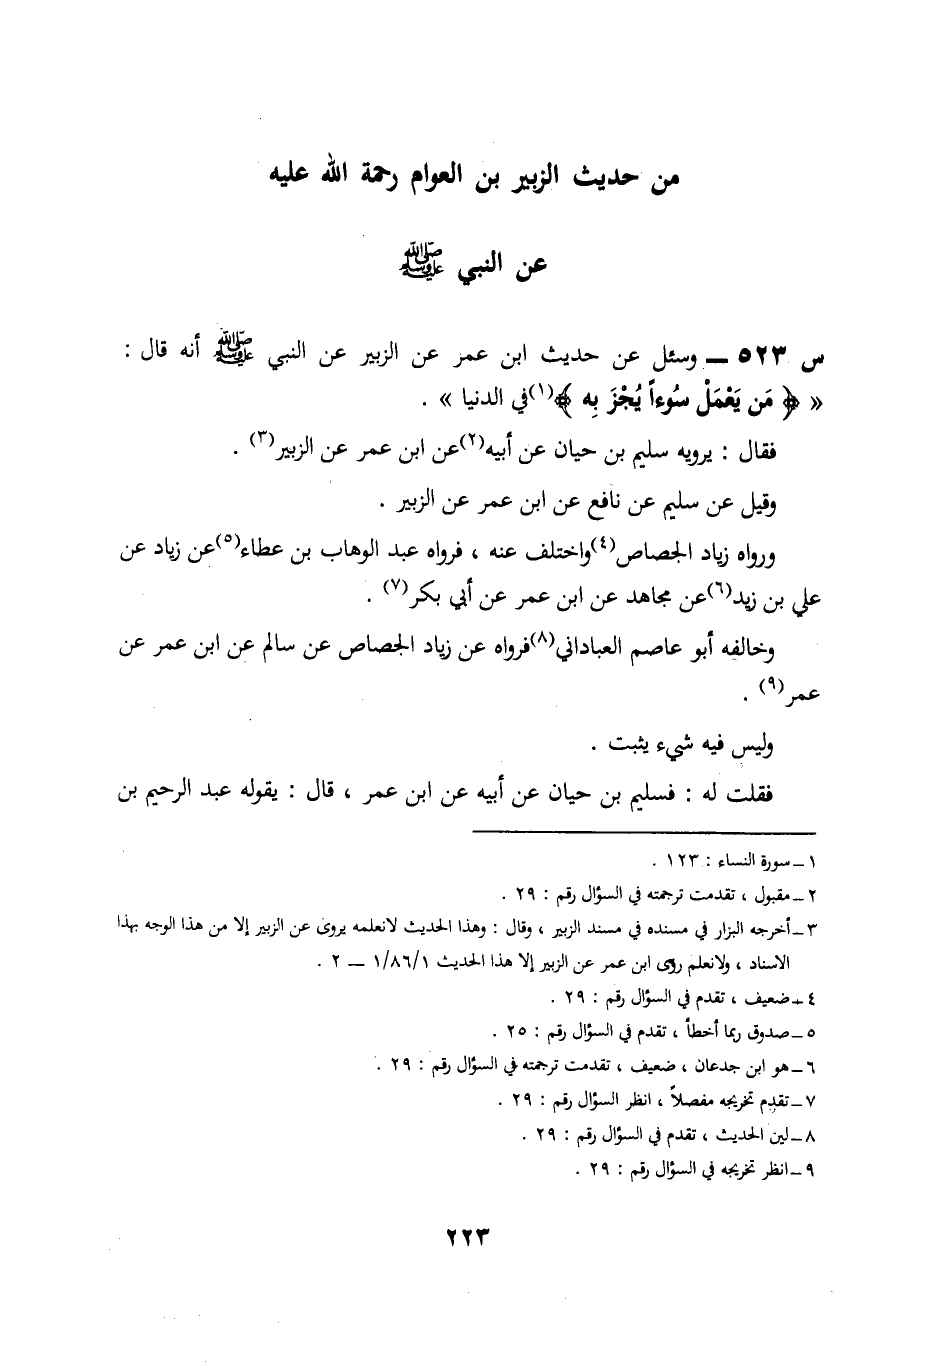 من حديث الزبير بن العوام رحمة الله عليه
عن النبي ﷺ
س ٥٢٣ ــ وسئل عن حديث ابن عمر عن الزبير عن النبي ﷺ أنه قال :
« ﴿ مَن يَعْمَلْ سُوءاً يُجْزَ بِه ﴾(١)في الدنيا » .
فقال : يرويه سليم بن حيان عن أبيه(٢)عن ابن عمر عن الزبير(٣) .
وقيل عن سليم عن نافع عن ابن عمر عن الزبير .
ورواه زياد الجصاص(٤)واختلف عنه ، فرواه عبد الوهاب بن عطاء(٥)عن زياد عن
علي بن زيد(٦)عن مجاهد عن ابن عمر عن أبي بكر(٧) .
وخالفه أبو عاصم العباداني(٨)فرواه عن زياد الجصاص عن سالم عن ابن عمر عن
عمر(٩) .
وليس فيه شيء يثبت .
فقلت له : فسليم بن حيان عن أبيه عن ابن عمر ، قال : يقوله عبد الرحيم بن
١ ــ سورة النساء : ١٢٣ .
٢ ــ مقبول ، تقدمت ترجمته في السؤال رقم : ٢٩ .
٣ ــ أخرجه البزار في مسنده في مسند الزبير ، وقال : وهذا الحديث لانعلمه يروى عن الزبير إلا من هذا الوجه بهذا
الاسناد ، ولانعلم روى ابن عمر عن الزبير إلا هذا الحديث ١/٨٦/١ ــ ٢ .
٤ ــ ضعيف ، تقدم في السؤال رقم : ٢٩ .
٥ ــ صدوق ربما أخطأ ، تقدم في السؤال رقم : ٢٥ .
٦ ــ هو ابن جدعان ، ضعيف ، تقدمت ترجمته في السؤال رقم : ٢٩ .
٧ ــ تقدم تخريجه مفصلاً ، انظر السؤال رقم : ٢٩ .
٨ ــ لين الحديث ، تقدم في السؤال رقم : ٢٩ .
٩ ــ انظر تخريجه في السؤال رقم : ٢٩ .
٢٢٣